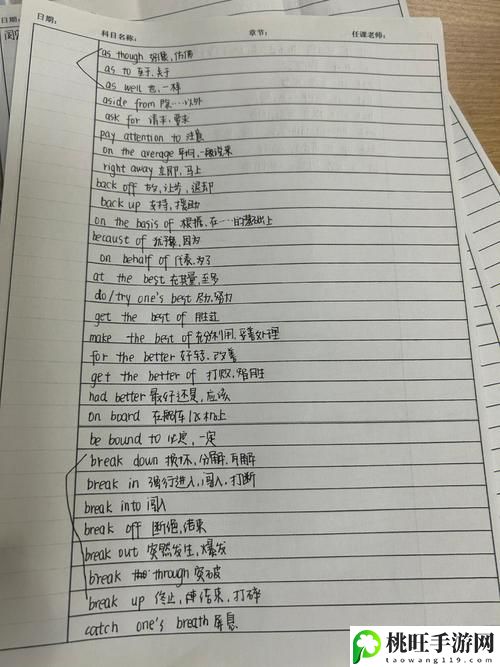 日期:
科目名称:
章节:
任课老师:
as though 好像,仿佛
as to 至于,关于
as well 也,一样
aside from 除……以外
ask for 请求,要求
pay attention to 注意
on the average 平均,一般说来
right away 立即,马上
back off 放,让步,退却
back up 支持,援助
on the basis of 根据,在……的基础上
becaust of 因为
on behalf of 代表,为了
at the best 至多
do/try one's best 尽力,努力
get the best of 胜过
make the best of 充分利用,妥善处理
for the better 好转,改善
get the better of 打败,胜
had better 最好还是,应该
on board 在船上
be bound to 必定,一定
break down 损坏,分解,瓦解
break in 强行进入,闯入,打断
break into 闯入
break off 断绝,结束
break out 突然发生,爆发
break through 突破
break up 终止,结束,打碎
catch one's breath 屏息
桃旺手游网
taowang119.com